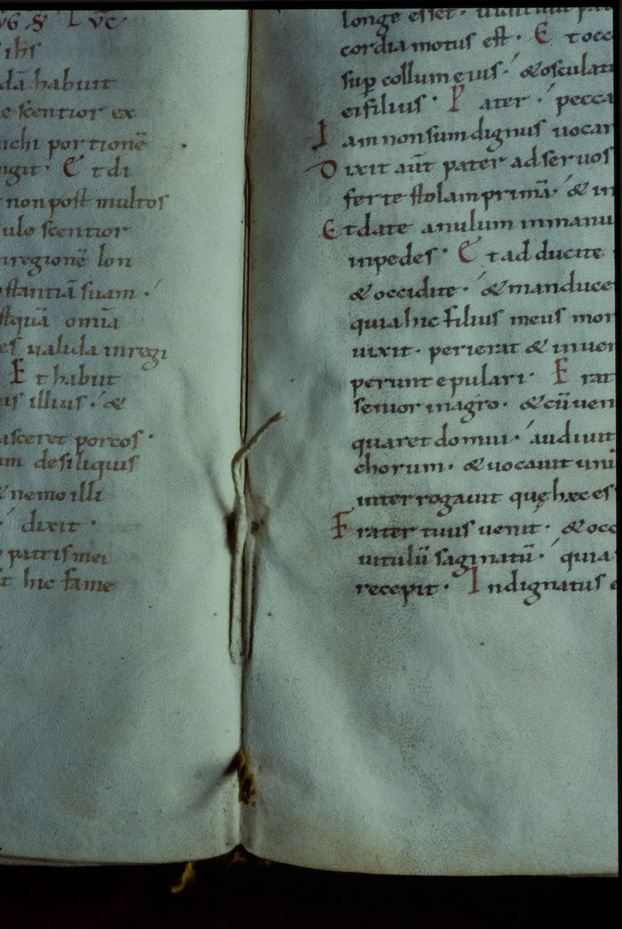 ihs
habuit
scentior ex
michi portionē
Et di
non post multos
ulescentior
regionē lon
stantiā suam
omīa
es valida inregi
Et habuit
illius. &
asceret porcos.
desiliquis
& nemo illi
dixit.
patris mei
hic fame
longe esset.
cordia motus est. Et occ
sup collum eius. & osculatu
ei filius. Pater. pecca
Iam non sum dignus uocar
Dixit aūt pater ad seruos
ferte stolam primā. & in
Et date anulum in manu
in pedes. Et adducite
& occidite. & manduce
quia hic filius meus mor
uixit. perierat & inuen
perunt epulari. Erat
senior in agro. & cū uen
quaret domui. audiuit
chorum. & uocauit unū
interrogauit quę hæc es
Frater tuus uenit. & occ
uitulū saginatū. quia
recepit. Indignatus e